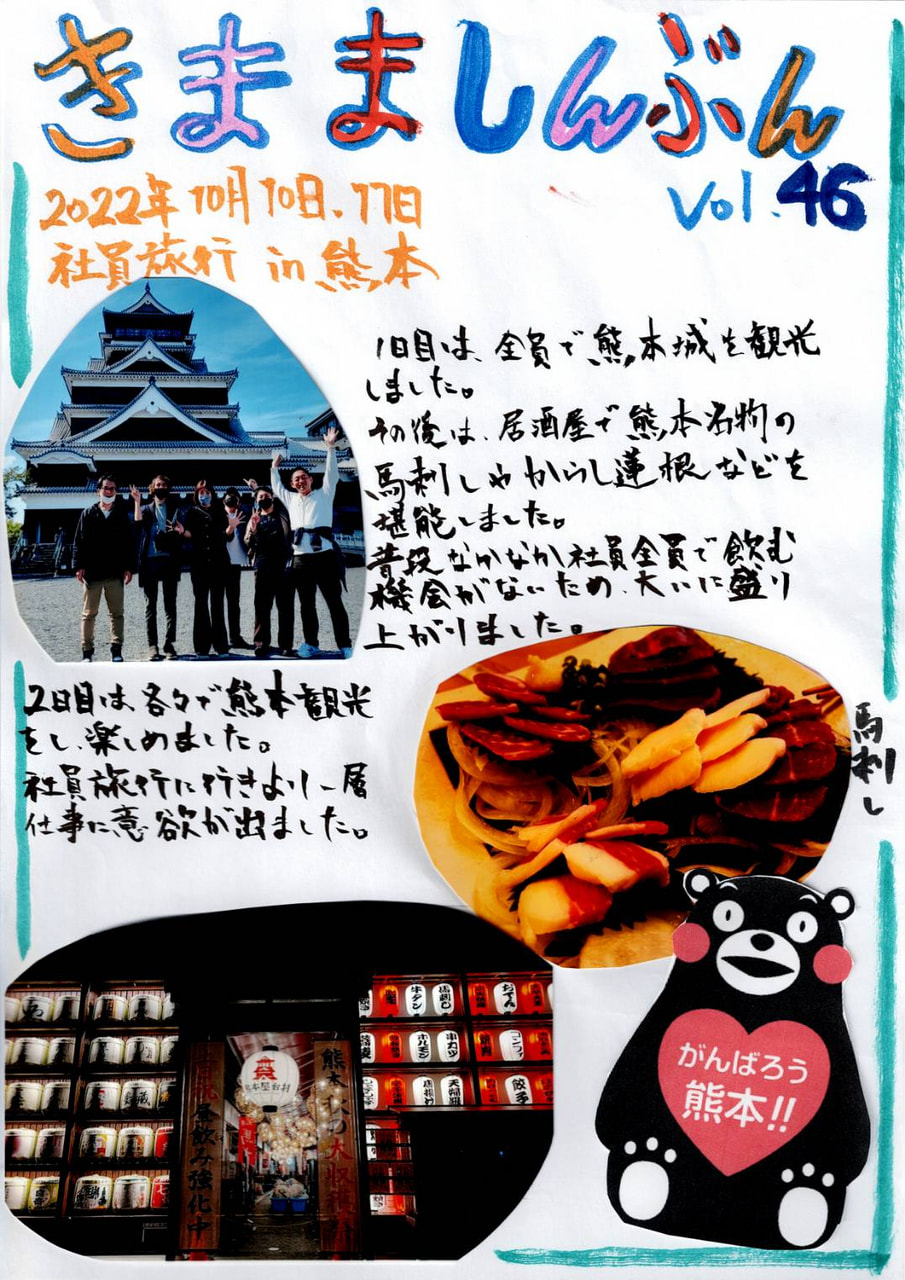 きままSんぶん
Vol.46
2022年10月10日.11日
社員旅行 in 熊本
1日目は、全員で熊本城を観光
しました。
その後は、居酒屋で熊本名物の
馬刺しやからし蓮根などを
堪能しました。
普段なかなか社員全員で飲む
機会がないため、大いに盛り
上がりました。
2日目は、各々で熊本観光
をし、楽しめました。
社員旅行に行きより一層
仕事に意欲が出ました。
馬刺し
牛タン
馬刺し
おでん
ホルモン
串カツ
唐揚げ
天婦羅
餃子
昼飲み強化中
がんばろう
熊本!!